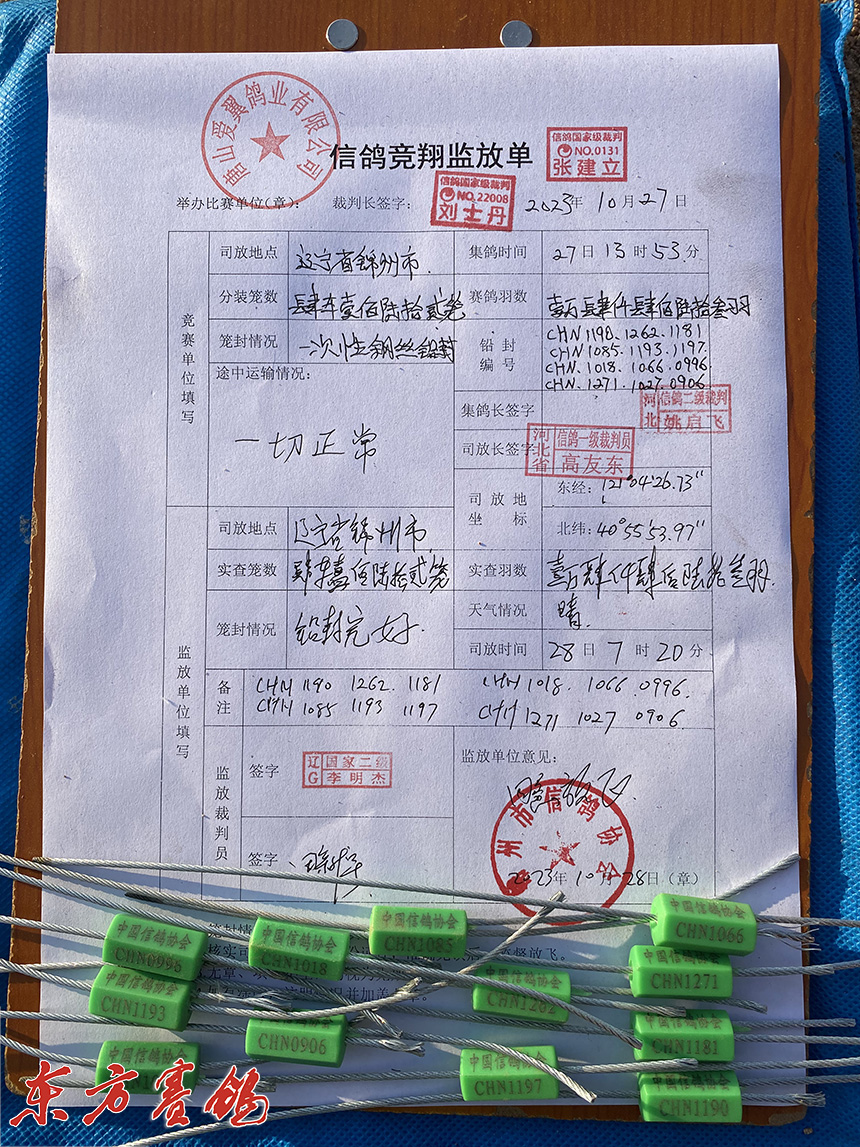 唐山爱翼鸽业有限公司
信鸽竞翔监放单
信鸽国家级裁判
NO.0131
张建立
举办比赛单位(章):
裁判长签字:
信鸽国家级裁判
NO.22008
刘士丹
2023年10月27日
竞赛单位填写
司放地点 辽宁省锦州市 集鸽时间 27日13时53分
分装笼数 肆车壹佰陆拾贰笼 赛鸽羽数 壹万肆仟肆佰陆拾叁羽
笼封情况 一次性钢丝铅封 铅封编号
CHN1190.1262.1181
CHN1085.1193.1197.
CHN.1018.1066.0996
CHN.1271.1027.0906
途中运输情况:
一切正常
集鸽长签字
河北 信鸽二级裁判 姚启飞
司放长签字
河北省 信鸽一级裁判员 高友东
司放地坐标
东经: 121°04'26.73"
北纬: 40°55'53.97"
监放单位填写
司放地点 辽宁省锦州市
实查笼数 肆车壹佰陆拾贰笼 实查羽数 壹万肆仟肆佰陆拾叁羽.
笼封情况 铅封完好. 天气情况 晴.
司放时间 28日7时20分
备注
CHN 1190 1262. 1181 CHN 1018. 1066 0996.
CHN 1085 1193 1197 CHN 1271 1027 0906
监放裁判员
签字
辽G 国家二级 李明杰
签字
监放单位意见:
州市信鸽协会
2023年10月28日(章)
中国信鸽协会
CHN1066
中国信鸽协会
CHN0996
中国信鸽协会
CHN1018
中国信鸽协会
CHN1085
中国信鸽协会
CHN1271
中国信鸽协会
CHN1193
中国信鸽协会
CHN1262
中国信鸽协会
CHN0906
中国信鸽协会
CHN1181
中国信鸽协会
中国信鸽协会
CHN1197
中国信鸽协会
CHN1190
东方赛鸽